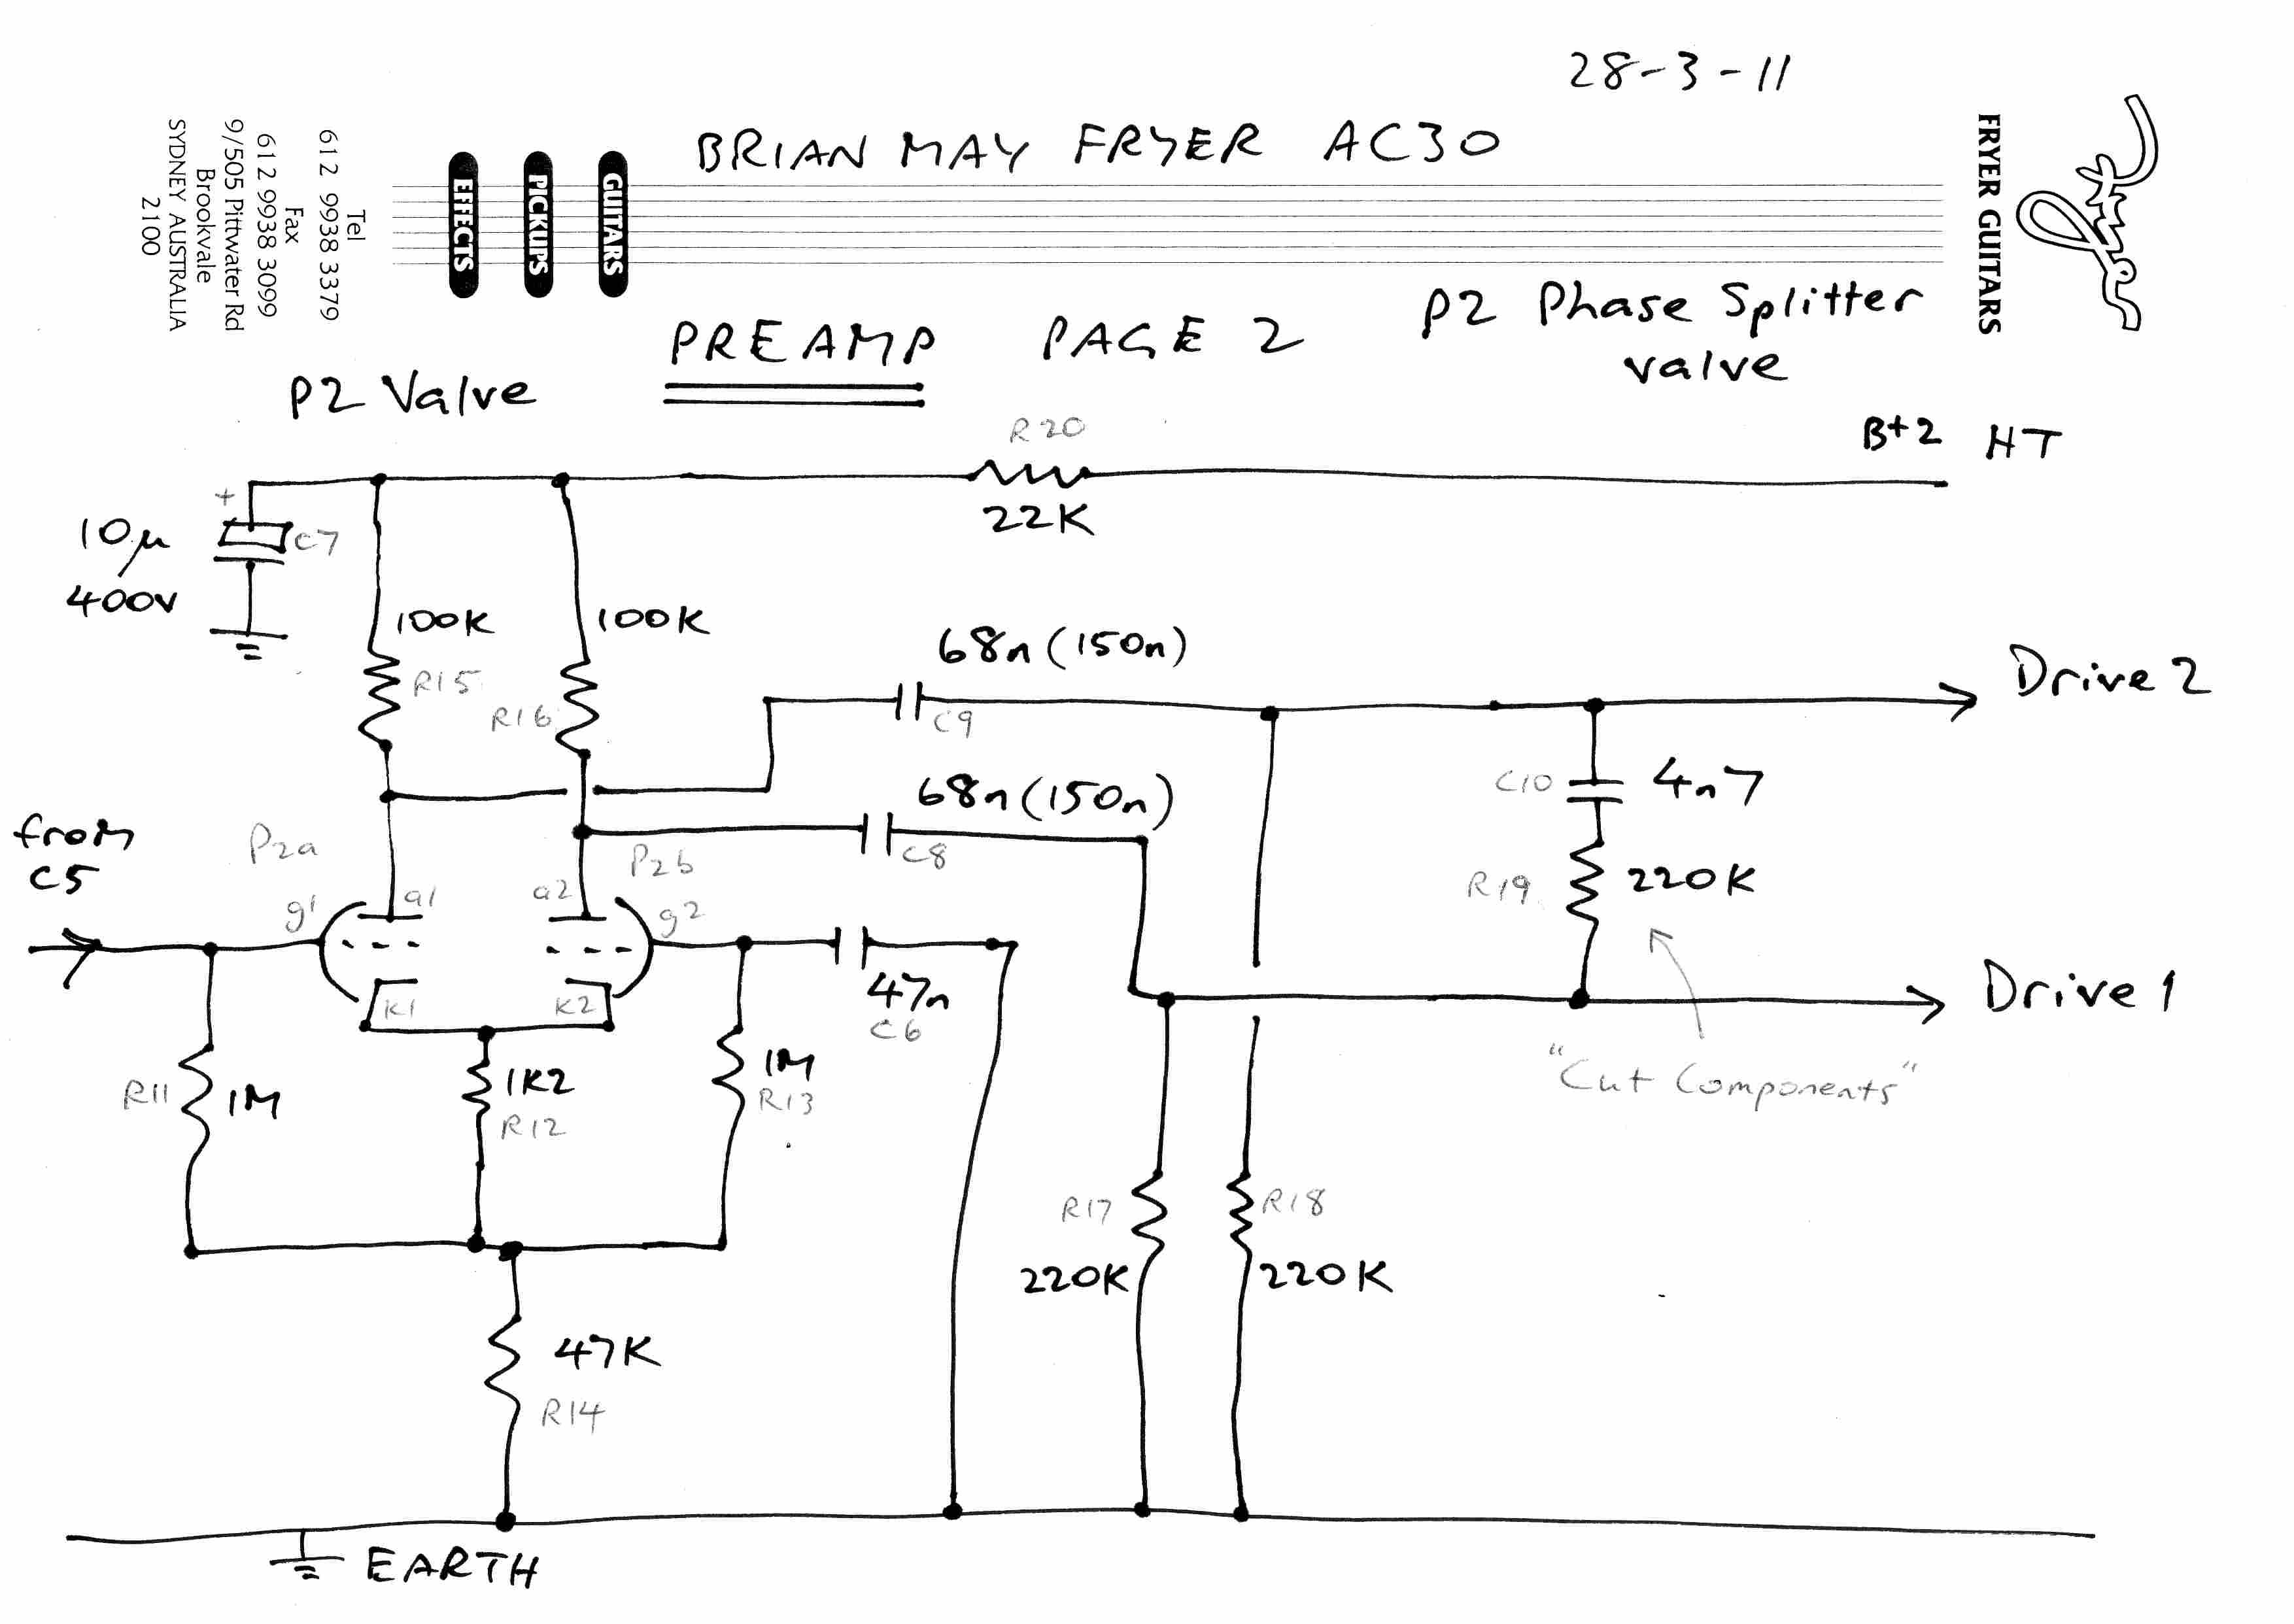 28-3-11
BRIAN MAY FRYER AC30
Fryer
FRYER GUITARS
GUITARS
PICKUPS
EFFECTS
Tel
612 9938 3379
Fax
612 9938 3099
9/505 Pittwater Rd
Brookvale
SYDNEY AUSTRALIA
2100
PREAMP PAGE 2
P2 Phase Splitter
valve
P2 Valve
R20
B+2 HT
22K
+
10µ
400V
C7
100K
R15
100K
R16
68n (150n)
C9
Drive 2
68n (150n)
C8
C10
4n7
R19
220K
from
C5
P2a
g1
a1
k1
P2b
a2
g2
K2
47n
C6
Drive 1
"Cut Components"
R11
1M
1K2
R12
1M
R13
R17
220K
R18
220K
47K
R14
EARTH